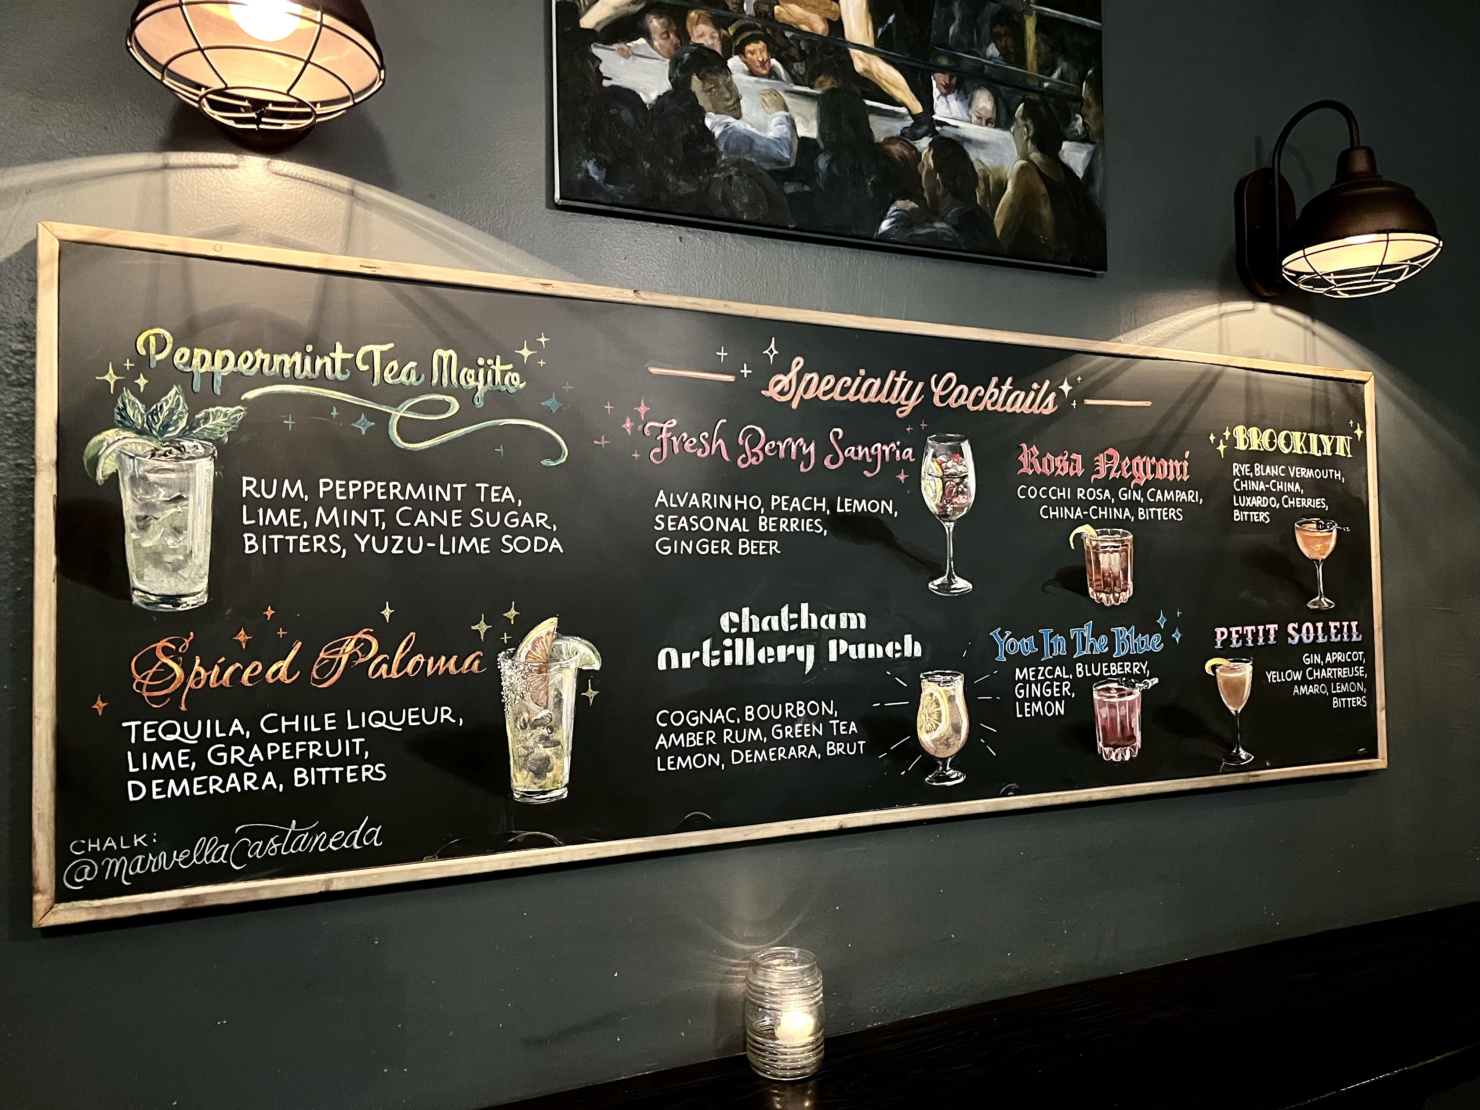 Peppermint Tea Mojito
RUM, PEPPERMINT TEA,
LIME, MINT, CANE SUGAR,
BITTERS, YUZU-LIME SODA
Spiced Paloma
TEQUILA, CHILE LIQUEUR,
LIME, GRAPEFRUIT,
DEMERARA, BITTERS
CHALK:
@marvellaCastaneda
Specialty Cocktails
Fresh Berry Sangria
ALVARINHO, PEACH, LEMON,
SEASONAL BERRIES,
GINGER BEER
Chatham
Artillery Punch
COGNAC, BOURBON,
AMBER RUM, GREEN TEA
LEMON, DEMERARA, BRUT
Rosa Negroni
COCCHI ROSA, GIN, CAMPARI,
CHINA-CHINA, BITTERS
You In The Blue
MEZCAL, BLUEBERRY,
GINGER,
LEMON
BROOKLYN
RYE, BLANC VERMOUTH,
CHINA-CHINA,
LUXARDO, CHERRIES,
BITTERS
PETIT SOLEIL
GIN, APRICOT,
YELLOW CHARTREUSE,
AMARO, LEMON,
BITTERS